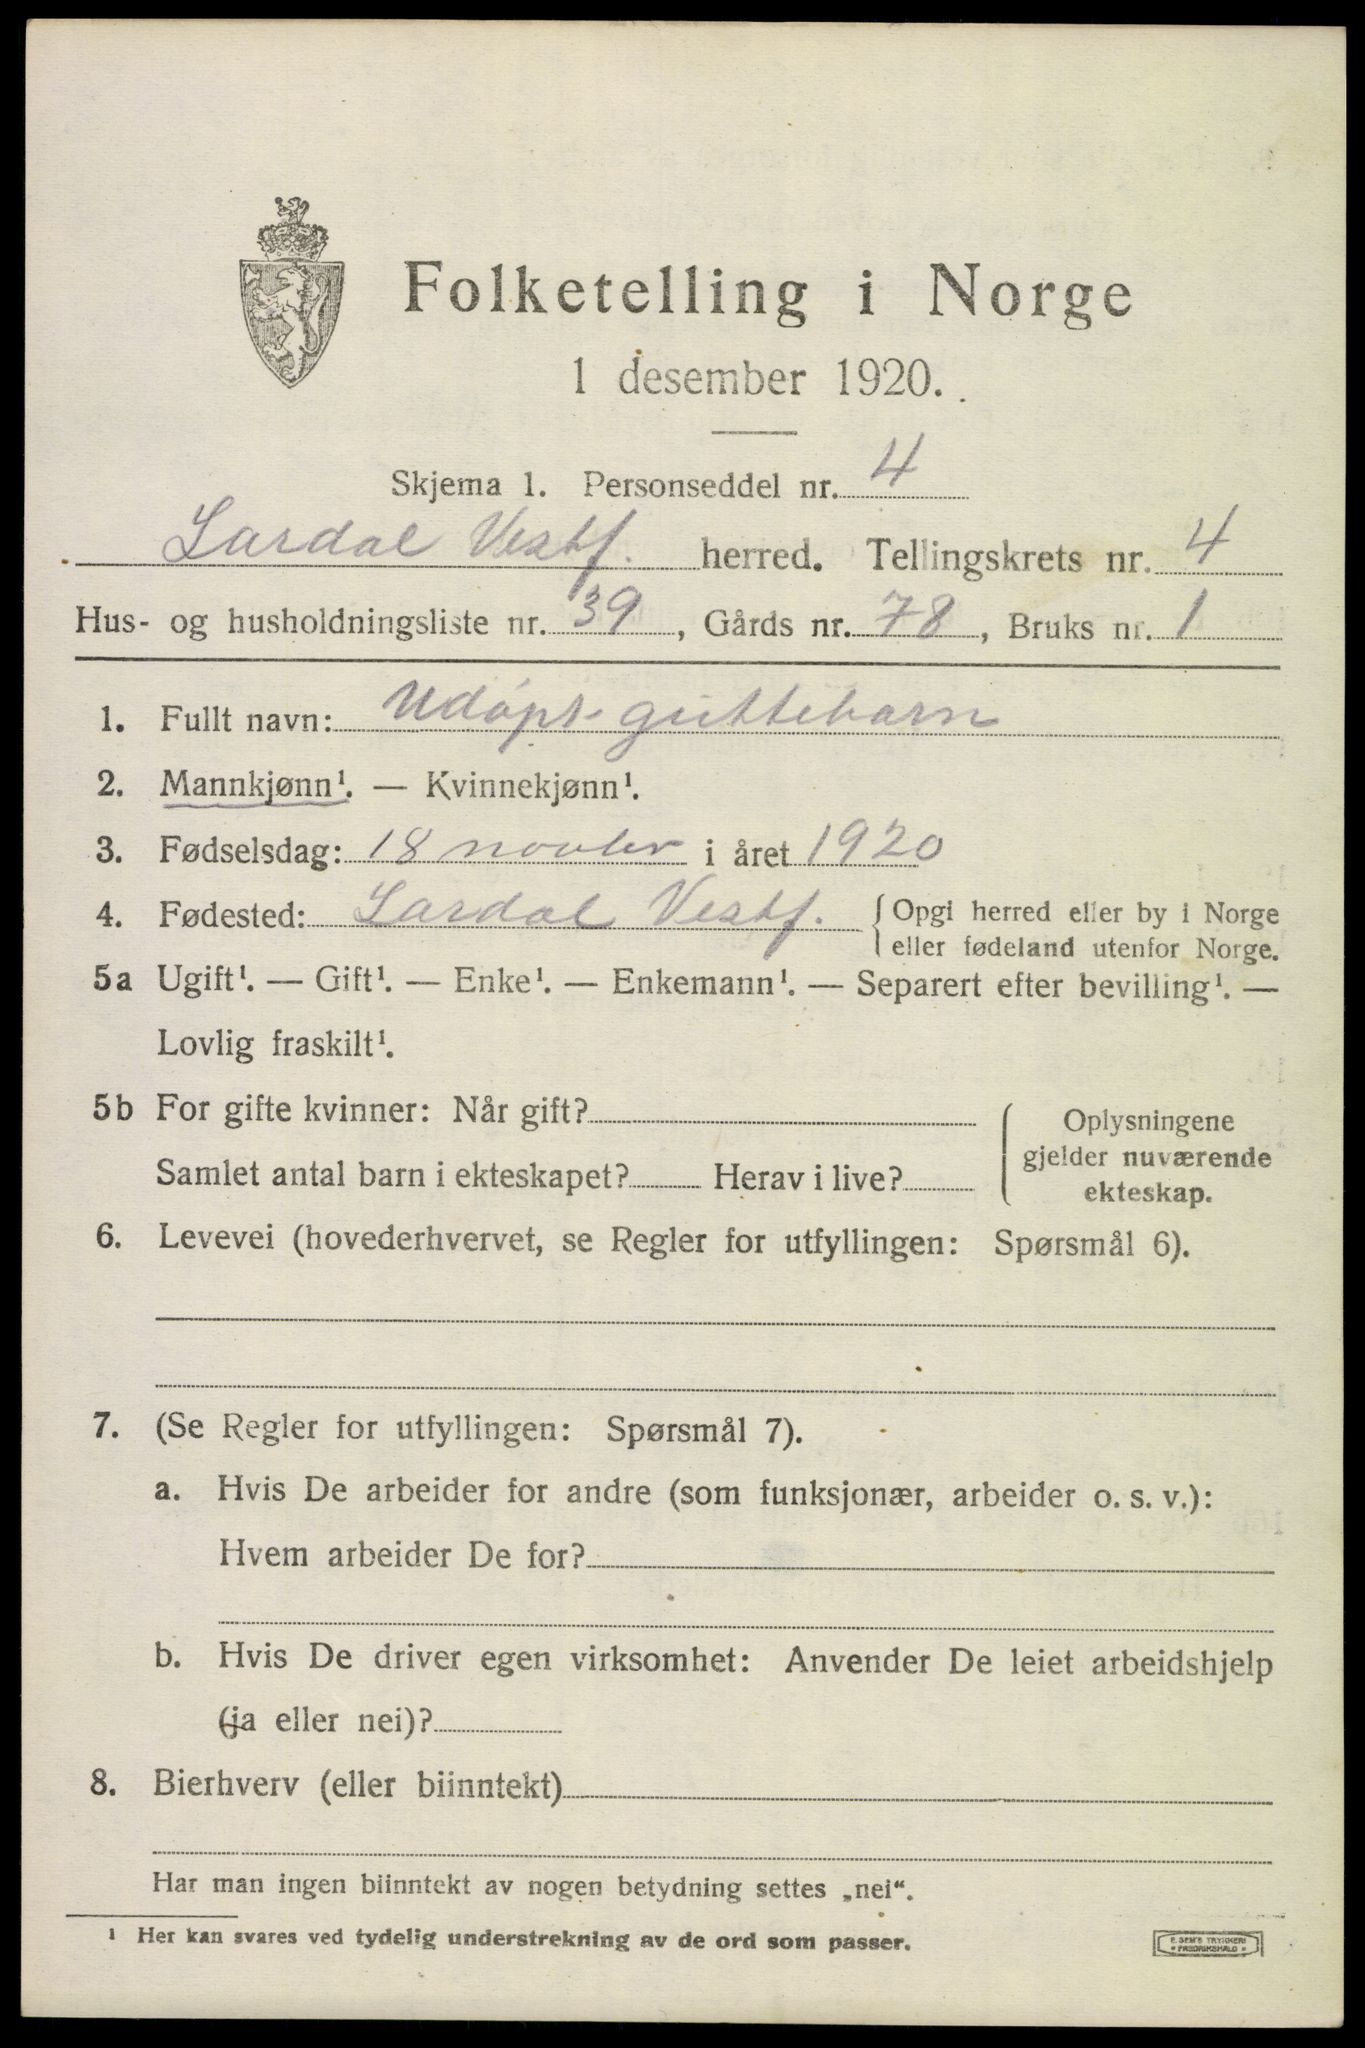 Folketelling i Norge
1 desember 1920.
Skjema 1. Personseddel nr. 4
Lardal Vestf. herred. Tellingskrets nr. 4
Hus- og husholdningsliste nr. 39, Gårds nr. 78, Bruks nr. 1
1. Fullt navn: Udøpt guttebarn
2. Mannkjønn¹. — Kvinnekjønn¹.
3. Fødselsdag: 18 novbr i året 1920
4. Fødested: Lardal Vestf. { Opgi herred eller by i Norge
eller fødeland utenfor Norge.
5a Ugift¹. — Gift¹. — Enke¹. — Enkemann¹. — Separert efter bevilling¹. —
Lovlig fraskilt¹.
5b For gifte kvinner: Når gift?
Samlet antal barn i ekteskapet? Herav i live?
Oplysningene
gjelder nuværende
ekteskap.
6. Levevei (hovederhvervet, se Regler for utfyllingen: Spørsmål 6).
7. (Se Regler for utfyllingen: Spørsmål 7).
a. Hvis De arbeider for andre (som funksjonær, arbeider o. s. v.):
Hvem arbeider De for?
b. Hvis De driver egen virksomhet: Anvender De leiet arbeidshjelp
(ja eller nei)?
8. Bierhverv (eller biinntekt)
Har man ingen biinntekt av nogen betydning settes „nei“.
¹ Her kan svares ved tydelig understrekning av de ord som passer.
E. SEM'S TRYKKERI
FREDRIKSHALD